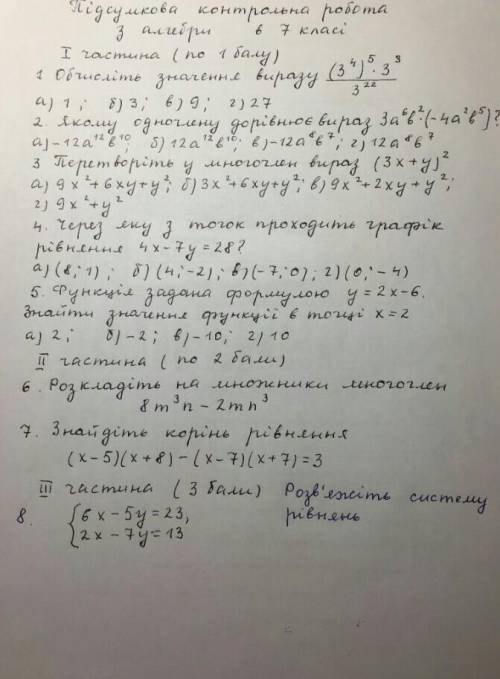 Підсумкова контрольна робота
з алгебри в 7 класі
I частина (по 1 балу)
1 Обчисліть значення виразу ((3⁴)⁵ · 3³)/3²²
а) 1; б) 3; в) 9; г) 27
2. Якому одночлену дорівнює вираз 3a⁶b²·(-4a²b⁵)?
а) -12a¹²b¹⁰; б) 12a¹²b¹⁰; в) -12a⁸b⁷; г) 12a⁸b⁷
3 Перетворіть у многочлен вираз (3x+y)²
а) 9x²+6xy+y²; б) 3x²+6xy+y²; в) 9x²+2xy+y²;
г) 9x²+y²
4. Через яку з точок проходить графік
рівняння 4x-7y=28?
а) (8; 1); б) (4; -2); в) (-7; 0); г) (0; -4)
5. Функція задана формулою y=2x-6.
Знайти значення функції в точці x=2
а) 2; б) -2; в) -10; г) 10
II частина (по 2 бали)
6. Розкладіть на множники многочлен
8m³n - 2mn³
7. Знайдіть корінь рівняння
(x-5)(x+8)-(x-7)(x+7)=3
III частина (3 бали) Розв'яжіть систему
рівнянь
8. {6x-5y=23,
2x-7y=13